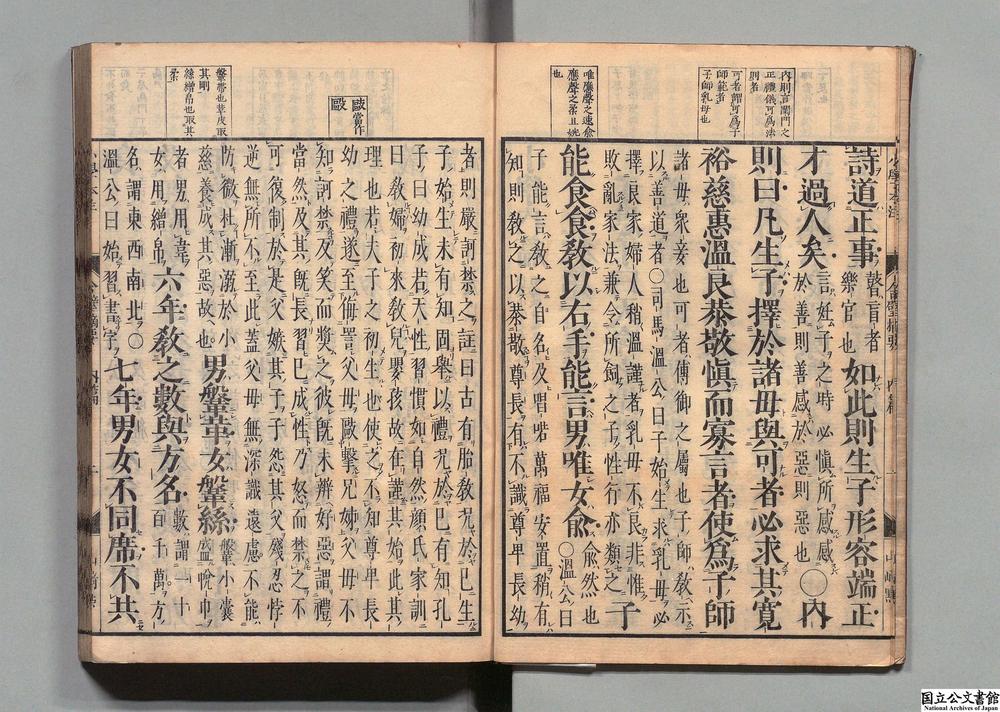 唯應聲之速兪
應聲之柔且婉
也
内則言閨門之
正禮儀可爲法
則者
可者謂可爲子
師範者
子師乳母也
詩道正事瞽盲者樂官也如此則生子形容端正
才過人矣言姙子之時必愼所感感於善則善感於惡則惡也〇内
則曰凡生子擇於諸母與可者必求其寬
裕慈惠溫良恭敬愼而寡言者使爲子師
諸母衆妾也可者傅御之屬也子師敎示
以善道者〇司馬溫公曰子始生求乳母必
擇良家婦人稍溫謹者乳母不良非惟
敗亂家法兼令所飼之子性行亦類之子
能食食敎以右手能言男唯女兪兪然也〇溫公曰
子能言敎之自名及唱喏萬福安置稍有
知則敎之以恭敬尊長有不識尊卑長幼
鞶帶也革皮取
其剛
絲繒帛也取其
柔
歐當作
毆
者則嚴訶禁之註曰古有胎敎况於已生
子始生未有知固舉以禮况於已有知孔
子曰幼成若天性習慣如自然顔氏家訓
曰敎婦初來敎兒嬰孩故在謹其始此其
理也若夫子之初生也使之不知尊卑長
幼之禮遂至侮詈父母歐擊兄姊父母不
知訶禁及笑而奬之彼旣未辨好惡謂禮
當然及其旣長習已成性乃怒而禁之不
可復制於是父嫉其子子怨其父殘忍悖
逆無所不至此蓋父母無深識遠慮不能
防微杜漸溺於小慈養成其惡故也男鞶革女鞶絲鞶小囊盛帨巾
者男用韋女用繒帛六年敎之數與方名數謂一十百千萬方
名謂東西南北〇溫公曰始習書字七年男女不同席不共
国立公文書館
National Archives of Japan